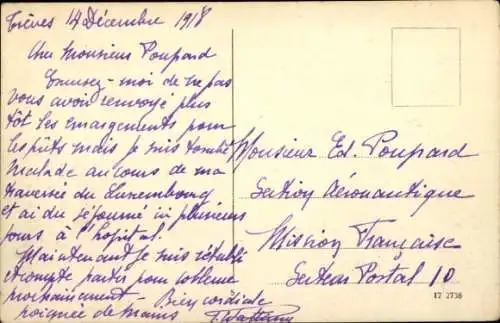 Trèves 14 Décembre 1918
Cher Monsieur Poupard
Excusez-moi de ne pas
vous avoir renvoyé plus
tôt les émargements pour
les prêts mais je suis tombé
malade au cours de ma
traversée du Luxembourg
et ai du séjourné ici plusieurs
jours à l'hopital.
Maintenant je suis rétabli
et compte partir pour Coblence
prochainement - Bien cordiale
poignée de mains
Monsieur Ed. Poupard
Section Aéronautique
Mission Française
Secteur Postal 10
17 2738